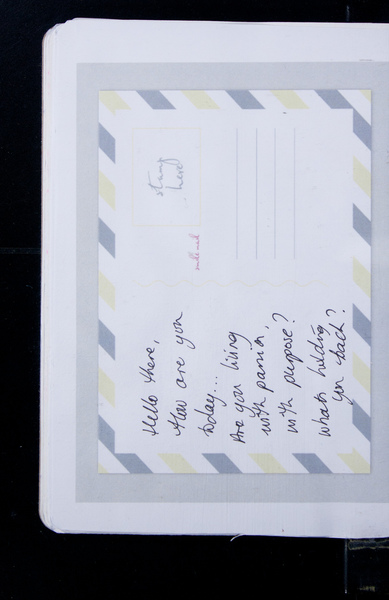 Hello there,
How are you
today...
Are you living
with passion,
with purpose?
whats holding
you back?
stamp
here